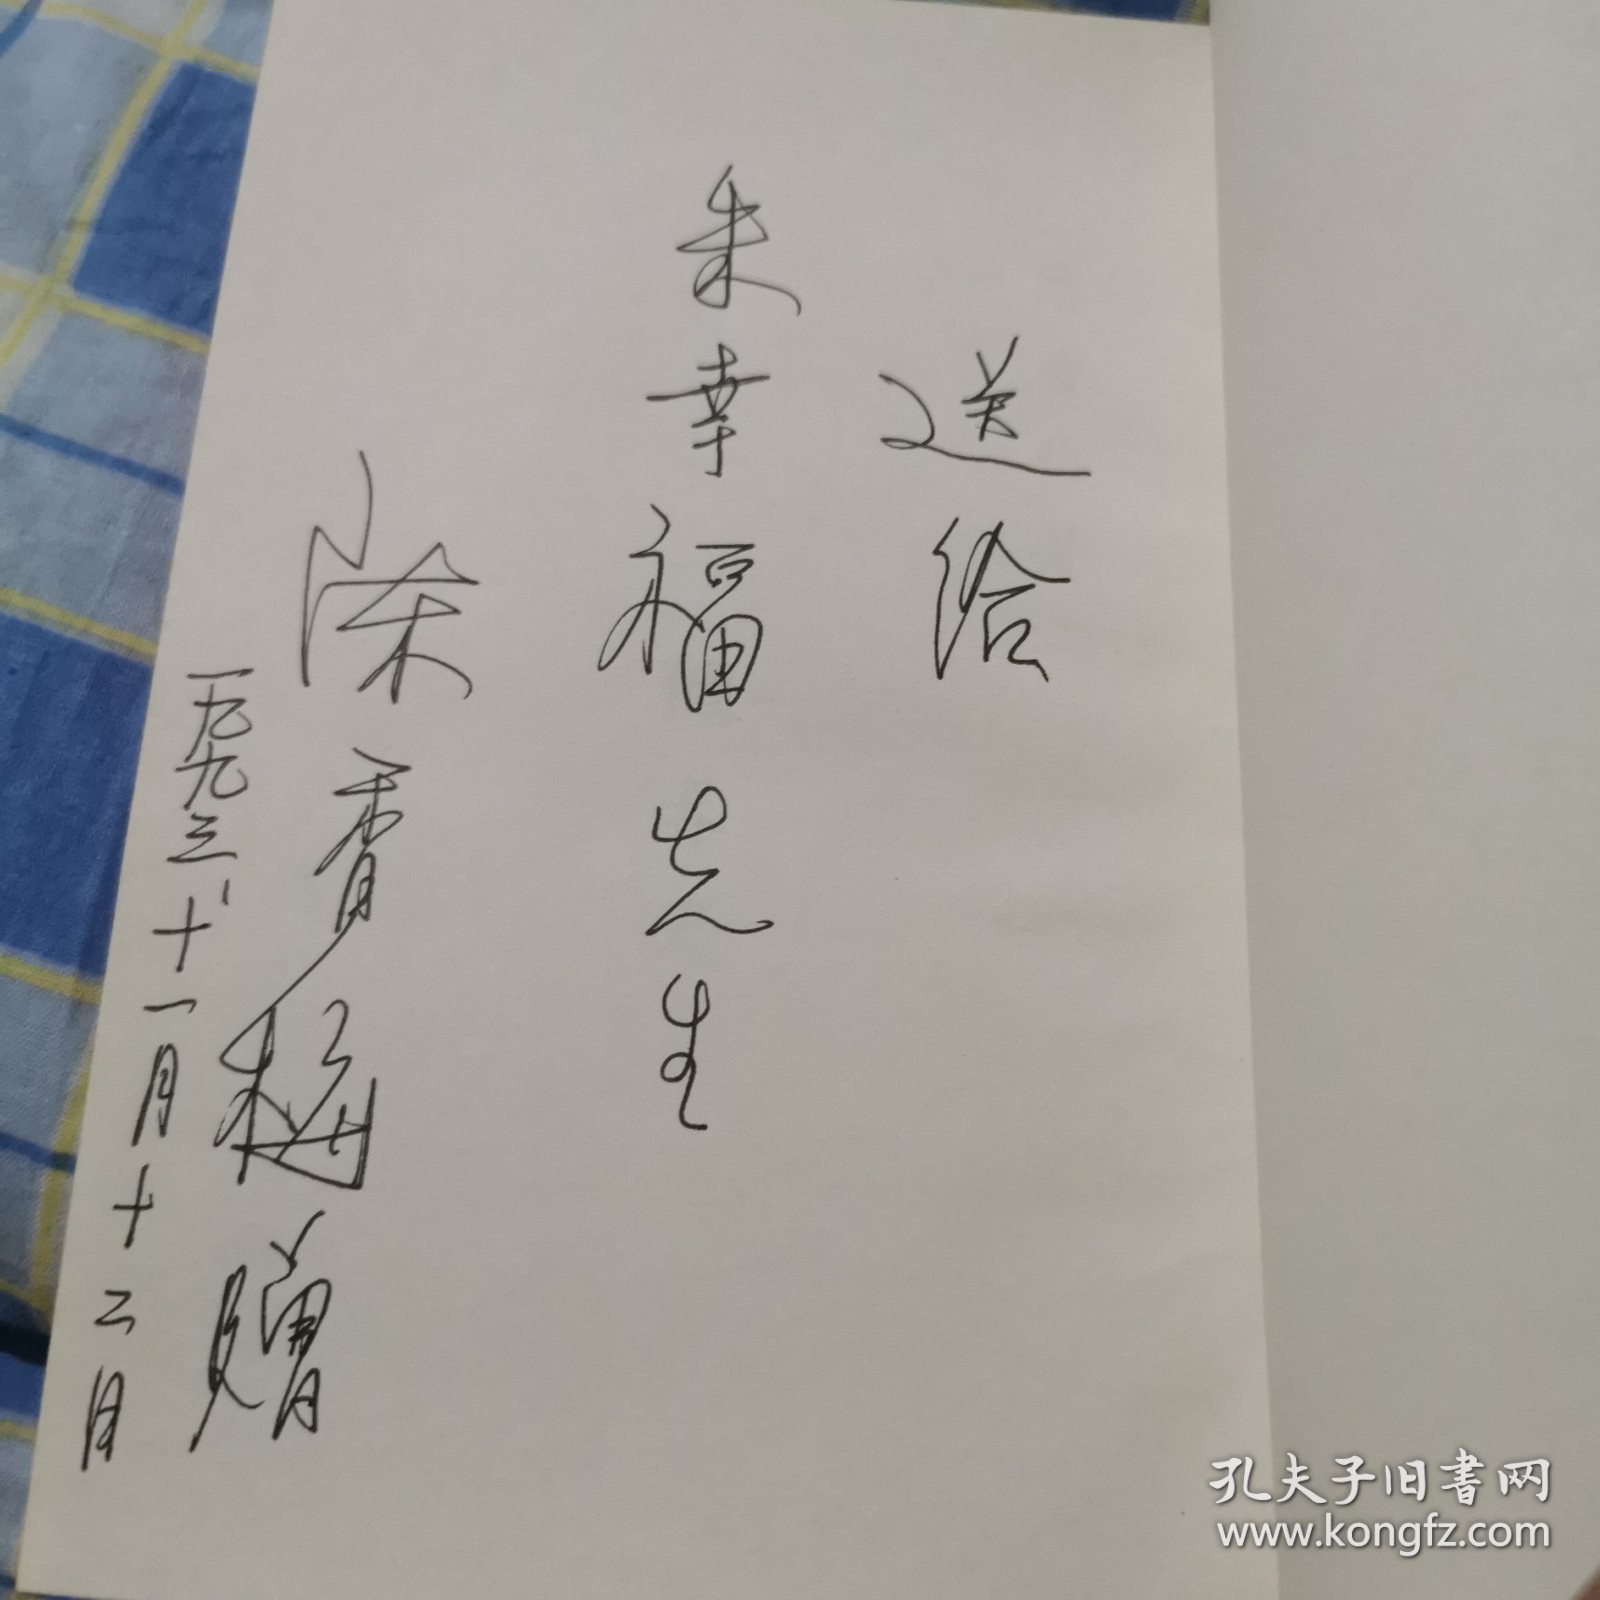 送给
朱幸福先生
梁香梅赠
一九九三·十一月十二日
孔夫子旧书网
www.kongfz.com